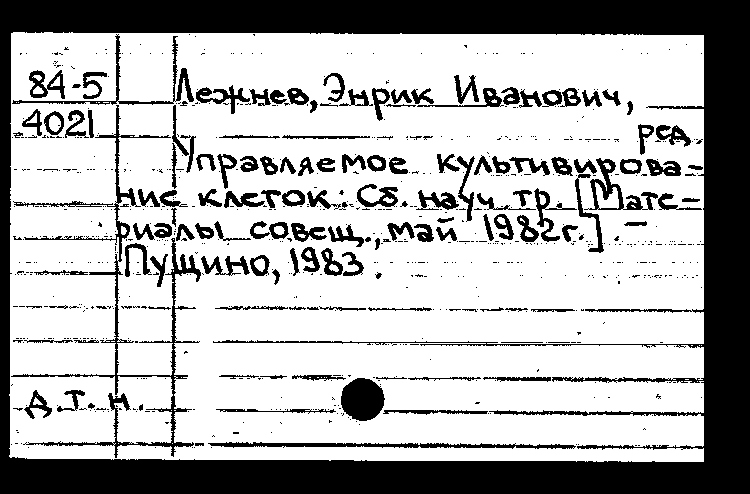 84-5 Лежнев, Энрик Иванович,
4021 ред.
Управляемое культивирова-
ние клеток: Сб. науч. тр. [Мате-
риалы совещ., май 1982г.]. –
Пущино, 1983.
д.т.н.